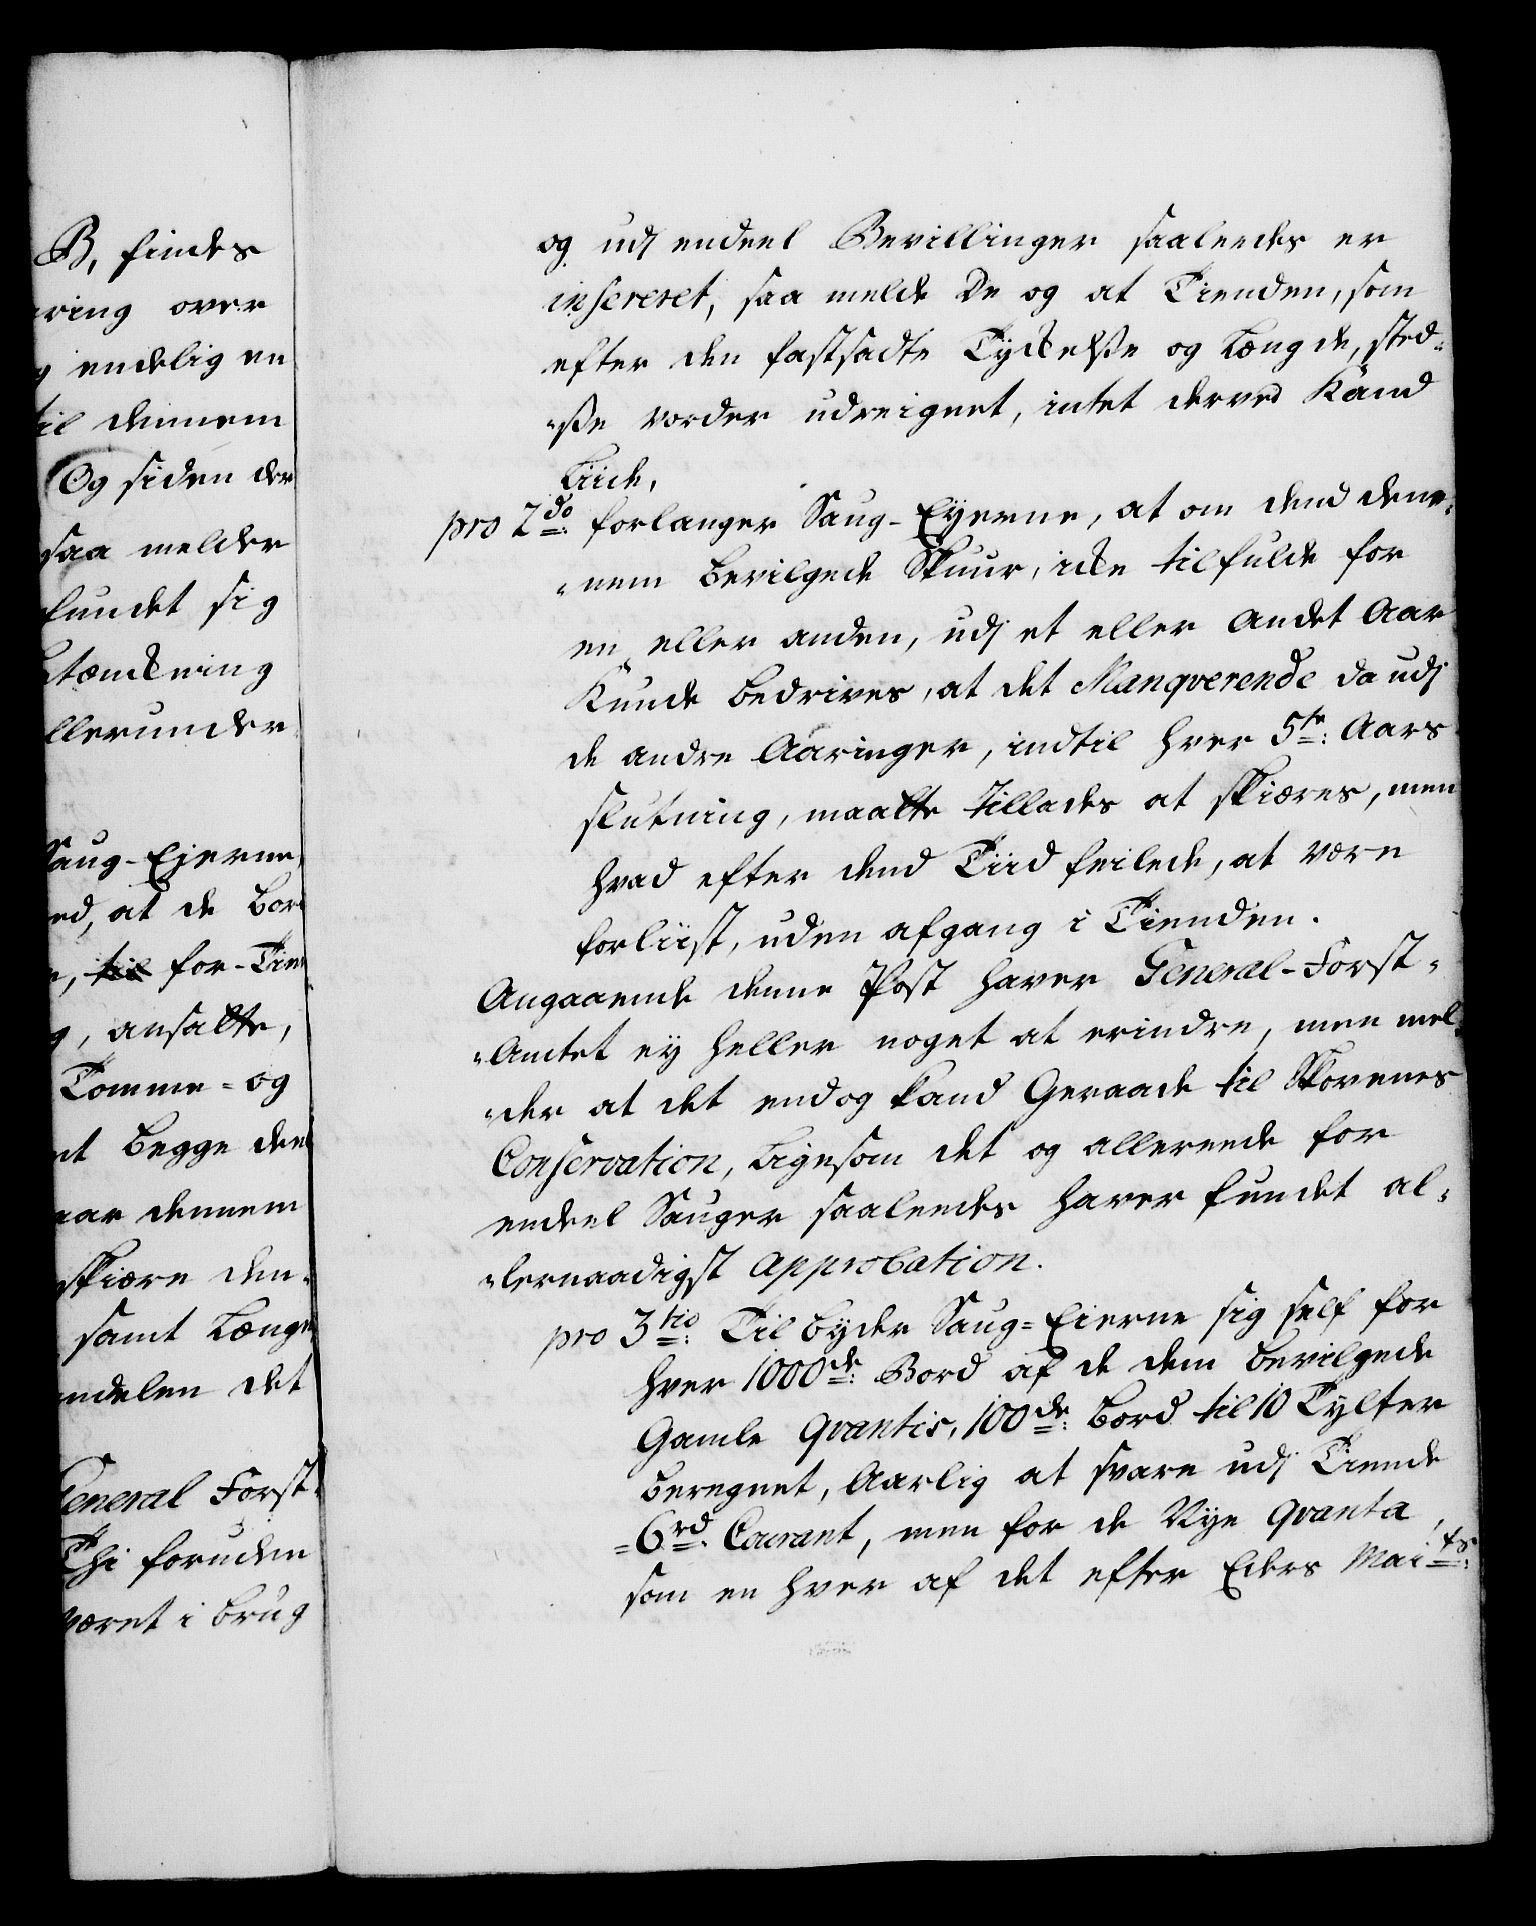 B, findes
ring over
endelig en
til dennem
Og siden der
saa melder
fundet sig
tænckning
llerunder
Saug-Ejerne,
ed, at de Bor
, til for-Tien
, ansatte,
Tomme- og
t begge den
aar dennem
skiære den-
samt Læng
ndelen det
General Forst-
Thi foruden
været i brug
og udj endeel Bevillinger saaleedes er
insereret, saa melde De og at Tienden, som
efter den fastsadte Tyckelße og Længde, sted-
-ße vorder udreignet, intet derved kand
Liide,
pro 2do: forlanger Saug-Eyerne, at om dend den-
-nem bevilgede Skuur, icke tilfulde for
en eller anden, udj et eller andet Aar
kunde bedrives, at det Manqverende da udj
de andre Aaringer, indtil hver 5te: Aars
slutning, maatte tillades at skiæres, men
hvad efter dend Tiid feilede, at være
forliist, uden afgang i Tienden.
Angaaende denne Post haver General-Forst-
-Amtet ey heller noget at erindre, men mel-
-der at det endog kand Geraade til Skovenes
Conservation, ligesom det og allereede for
endeel Sauger saaleedes haver fundet al-
-lernaadigst Approbation.
pro 3tio: Til byder Saug-Eierne sig self for
hver 1000de: Bord af de dem bevilgede
Gamle qvantis, 100de: Bord til 10 Tylter
beregnet, Aarlig at svare udj Tiende
=6rd. Courant, men for de Nye qvanta,
som en hver af det efter Eders Mai:ts: